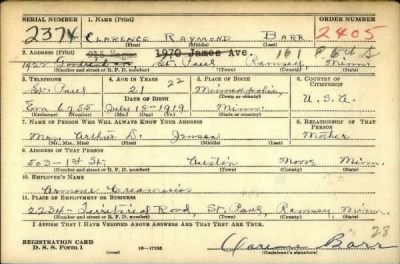 SERIAL NUMBER 1. NAME (Print) ORDER NUMBER
2374 CLARENCE RAYMOND BARR 2405
(First) (Middle) (Last)
2. ADDRESS (Print) 1970 James Ave. 161
St. Paul Ramsey Minn.
(Number and street or R. F. D. number) (Town) (County) (State)
3. TELEPHONE 4. AGE IN YEARS 22 5. PLACE OF BIRTH 6. COUNTRY OF CITIZENSHIP
St. Paul 21 Minneapolis
DATE OF BIRTH (Town or county)
6755 July 18-1919 Minn. U.S.A.
(Exchange) (Number) (Mo.) (Day) (Yr.) (State or country)
7. NAME OF PERSON WHO WILL ALWAYS KNOW YOUR ADDRESS 8. RELATIONSHIP OF THAT PERSON
Mrs. Arthur D. Jensen Mother
(Mr., Mrs., Miss) (First) (Middle) (Last)
9. ADDRESS OF THAT PERSON
503-1st St. Austin Minn.
(Number and street or R. F. D. number) (Town) (County) (State)
10. EMPLOYER'S NAME
Armour Creameries
11. PLACE OF EMPLOYMENT OR BUSINESS
2234-Territorial Road, St. Paul, Ramsey Minn.
(Number and street or R. F. D. number) (Town) (County) (State)
I AFFIRM THAT I HAVE VERIFIED ABOVE ANSWERS AND THAT THEY ARE TRUE.
28
REGISTRATION CARD
D. S. S. FORM 1 Clarence Barr
(Registrant's signature)